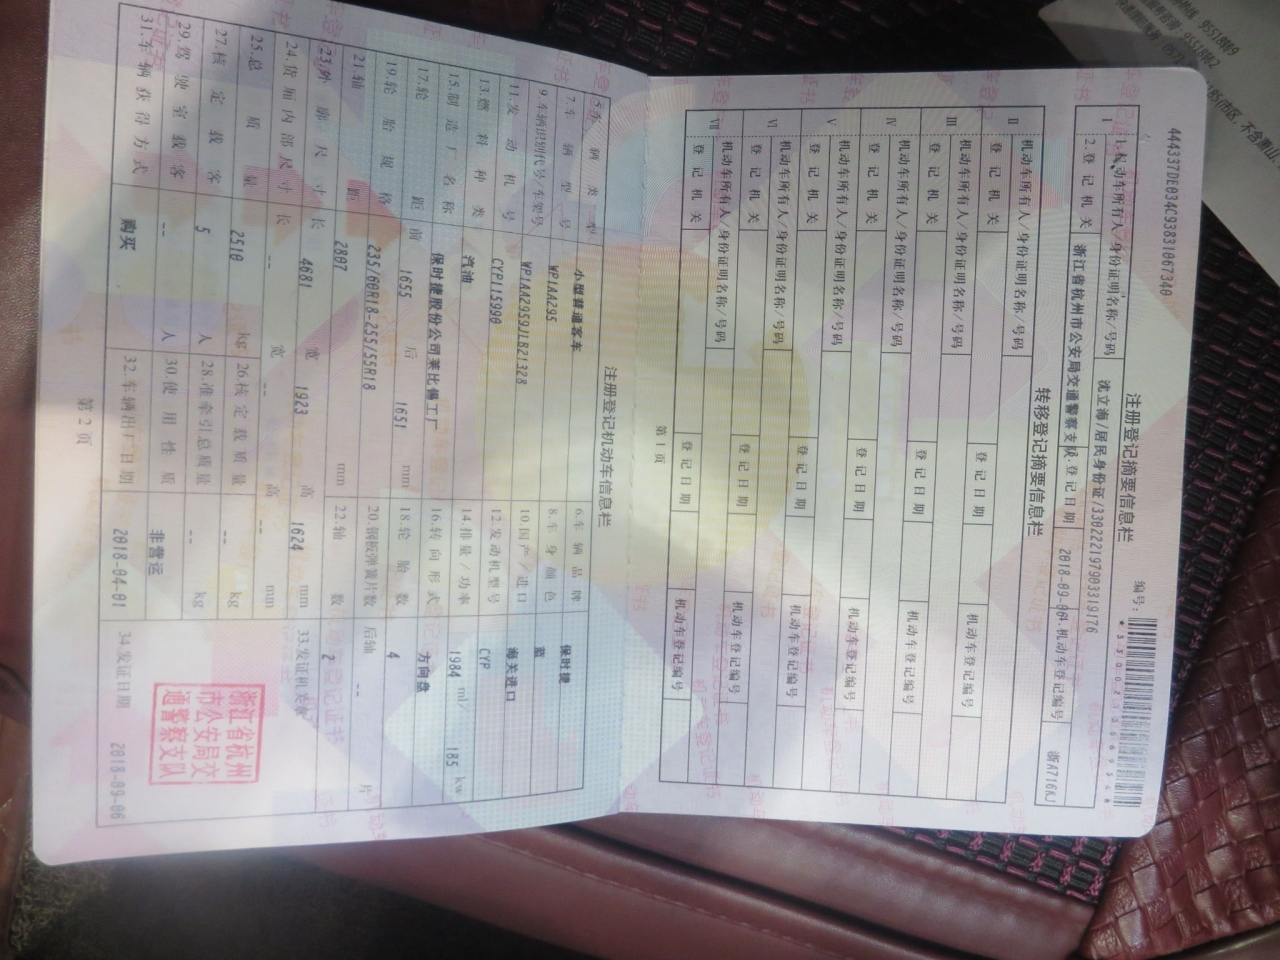 444337DE034C93831067340
注册登记摘要信息栏
编号:
I
1.机动车所有人/身份证明名称/号码
沈立海/居民身份证/330222197903319176
2.登记机关
浙江省杭州市公安局交通警察支队
3.登记日期
2018-09-06
4.机动车登记编号
浙A716KJ
转移登记摘要信息栏
II
机动车所有人/身份证明名称/号码
登记机关
登记日期
机动车登记编号
III
机动车所有人/身份证明名称/号码
登记机关
登记日期
机动车登记编号
IV
机动车所有人/身份证明名称/号码
登记机关
登记日期
机动车登记编号
V
机动车所有人/身份证明名称/号码
登记机关
登记日期
机动车登记编号
VI
机动车所有人/身份证明名称/号码
登记机关
登记日期
机动车登记编号
VII
机动车所有人/身份证明名称/号码
登记机关
登记日期
机动车登记编号
第 1 页
注册登记机动车信息栏
5.车辆类型 小型普通客车 6.车辆品牌 保时捷
7.车辆型号 WP1AA295 8.车身颜色 蓝
9.车辆识别代号/车架号 WP1AA2959JLB21328 10.国产/进口 海关进口
11.发动机号 CYP115990 12.发动机型号 CYP
13.燃料种类 汽油 14.排量/功率 1984 ml/ 185 kw
15.制造厂名称 保时捷股份公司莱比锡工厂 16.转向形式 方向盘
17.轮距 前 1655 后 1651 mm 18.轮胎数 4
19.轮胎规格 235/60R18-255/55R18 20.钢板弹簧片数 后轴 -- 片
21.轴距 2807 mm 22.轴数 2
23.外廓尺寸 长 4681 宽 1923 高 1624 mm
33.发证机关章
24.货厢内部尺寸 长 -- 宽 -- 高 -- mm
浙江省杭州
市公安局交
通警察支队
25.总质量 2510 kg 26.核定载质量 -- kg
27.核定载客 5 人 28.准牵引总质量 -- kg
29.驾驶室载客 -- 人 30.使用性质 非营运
31.车辆获得方式 购买 32.车辆出厂日期 2018-04-01 34.发证日期 2018-09-06
第 2 页